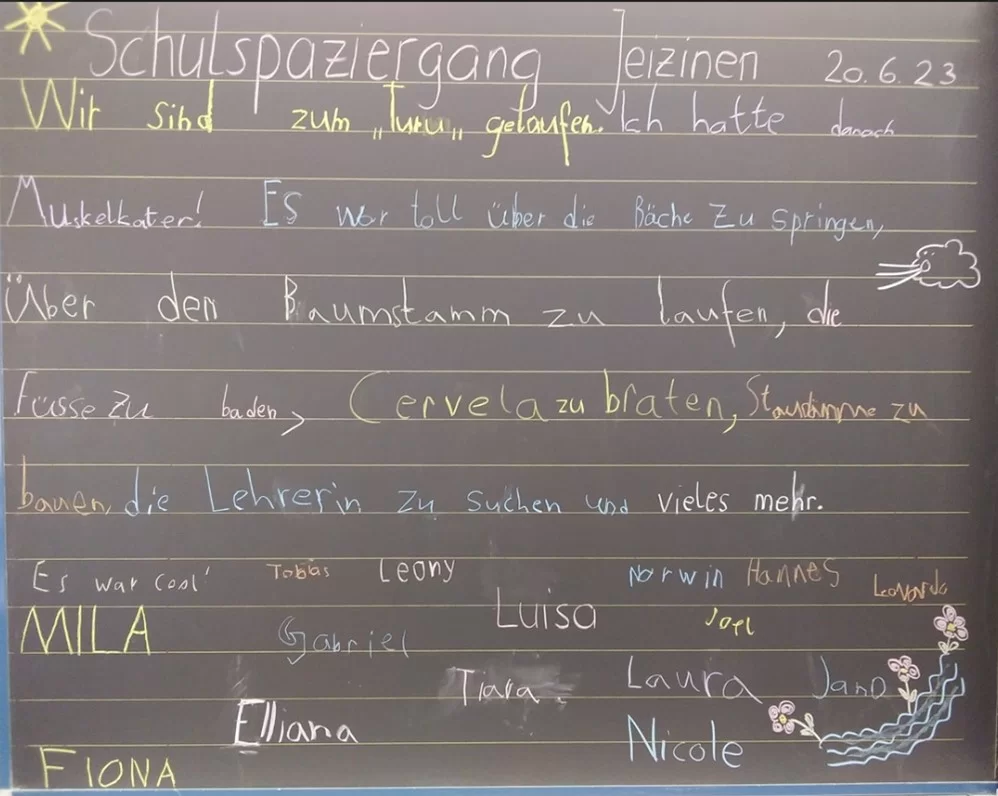 Schulspaziergang Jeizinen 20.6.23
Wir sind zum „Turu„ gelaufen. Ich hatte danach
Muskelkater! Es war toll über die Bäche zu springen,
über den Baumstamm zu laufen, die
Füsse zu baden, Cervela zu braten, Staudämme zu
bauen, die Lehrerin zu suchen und vieles mehr.
Es war cool! Tobias Leony Norwin Hannes Leonardo
MILA Gabriel Luisa Joel
Tiara Laura Jano
Elliana Nicole
FIONA